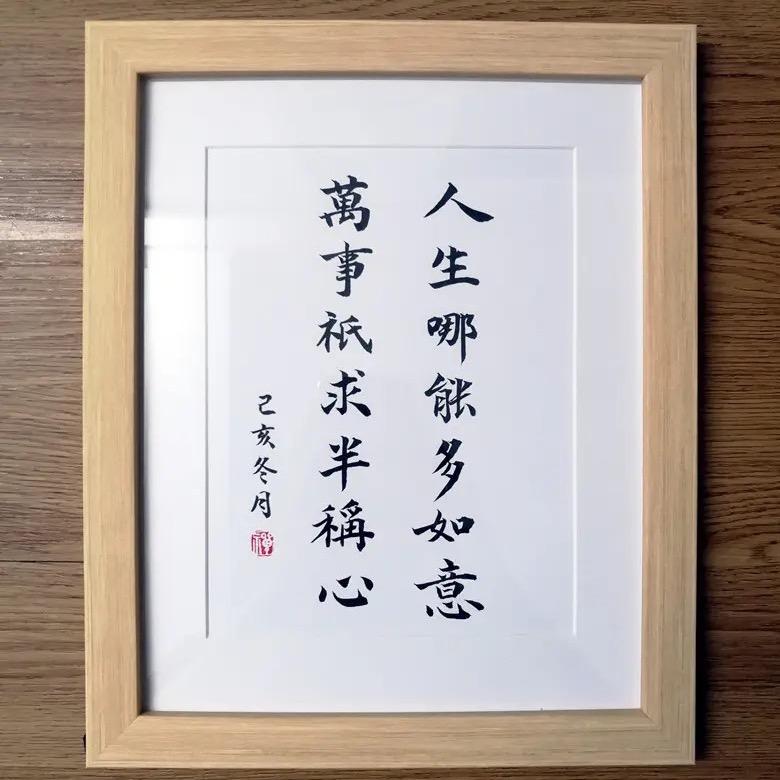 人生哪能多如意
萬事祇求半稱心
己亥冬月